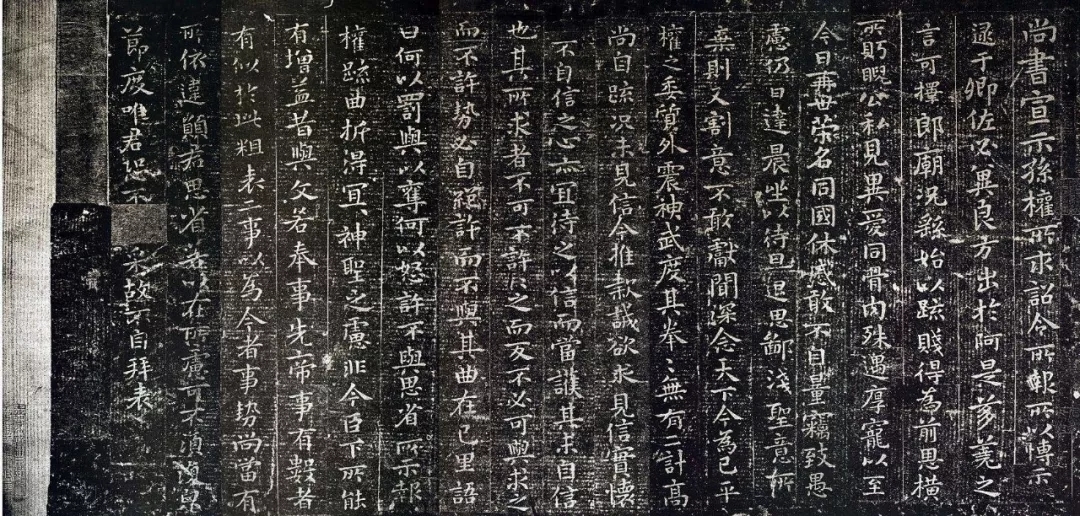 尚書宣示孫權所求詔令所報所以博示
逮于卿佐必冀良方出於阿是芻蕘之
言可擇郎廟況繇始以疏賤得為前恩橫
所盻睨公私見異愛同骨肉殊遇厚寵以至
今日再世榮名同國休慼敢不自量竊致愚
慮仍日達晨坐以待旦退思鄙淺聖意所
棄則又割意不敢獻聞深念天下今為已平
權之委質外震神武度其拳〻無有二計高
尚自疏況未見信今推款誠欲求見信實懷
不自信之心亦宜待之以信而當護其未自信
也其所求者不可不許許之而反不必可與求之
而不許勢必自絕許而不與其曲在己里語
曰何以罰與以奪何以怒許不與思省所示報
權疏曲折得宜〻神聖之慮非今臣下所能
有增益昔與文若奉事先帝事有數者
有似於此粗表二事以為今者事勢尚當有
所依違願君思省若以在所慮可不須復皃
節度唯君恐不采故不自拜表